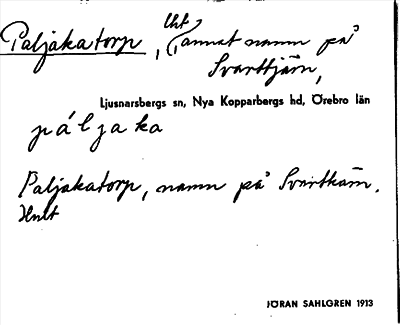 Paljakatorp, (annat namn på
Svarttjärn,
Ljusnarsbergs sn, Nya Kopparbergs hd, Örebro län
páljaka
Paljakatorp, namn på
JÖRAN SAHLGREN 1913